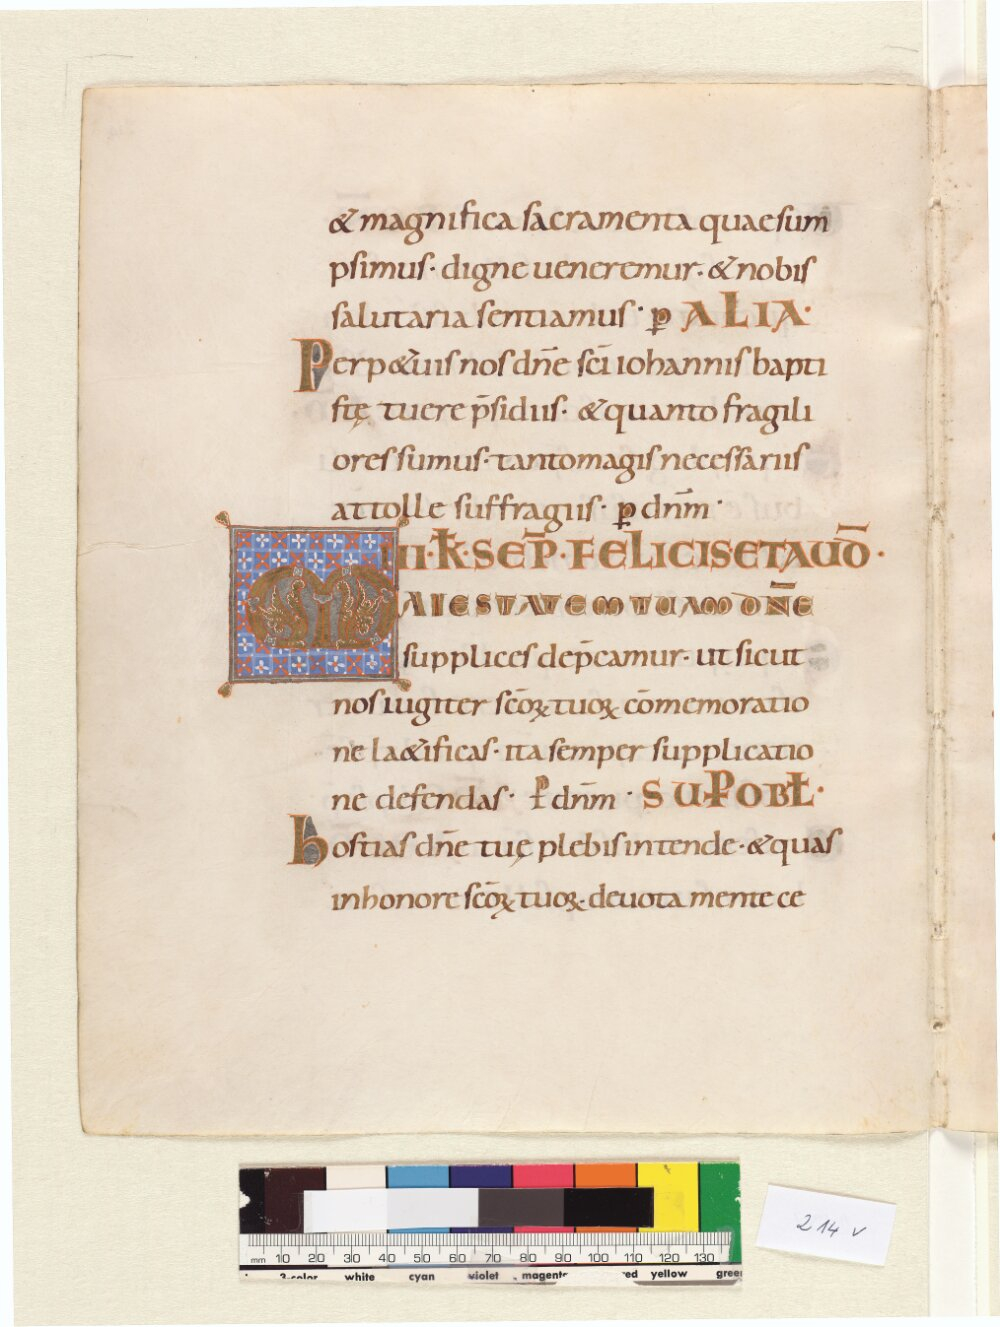 & magnifica sacramenta quaesum
psimus· digne ueneremur· & nobis
salutaria sentiamus· ꝑ ALIA·
Perp&uis nos dn̄e sc̄i iohannis bapti
stę tuere p̄sidiis· & quanto fragili
ores sumus· tanto magis necessariis
attolle suffragiis· ꝑ dn̄m·
III·K̄·SEP̄·FELICIS ET AUD̄·
MAIESTATEM TUAM DN̄E
supplices dep̄camur· ut sicut
nos iugiter sc̄oꝝ tuoꝝ cōmemoratio
ne l&ificas· ita semper supplicatio
ne defendas· dn̄m· SUP̄ OBL̄·
hostias dn̄e tuę plebis intende· & quas
in honore sc̄oꝝ tuoꝝ deuota mente ce
mm 10 20 30 40 50 60 70 80 90 100 110 120 130
3-color white cyan violet magenta red yellow green
214 v